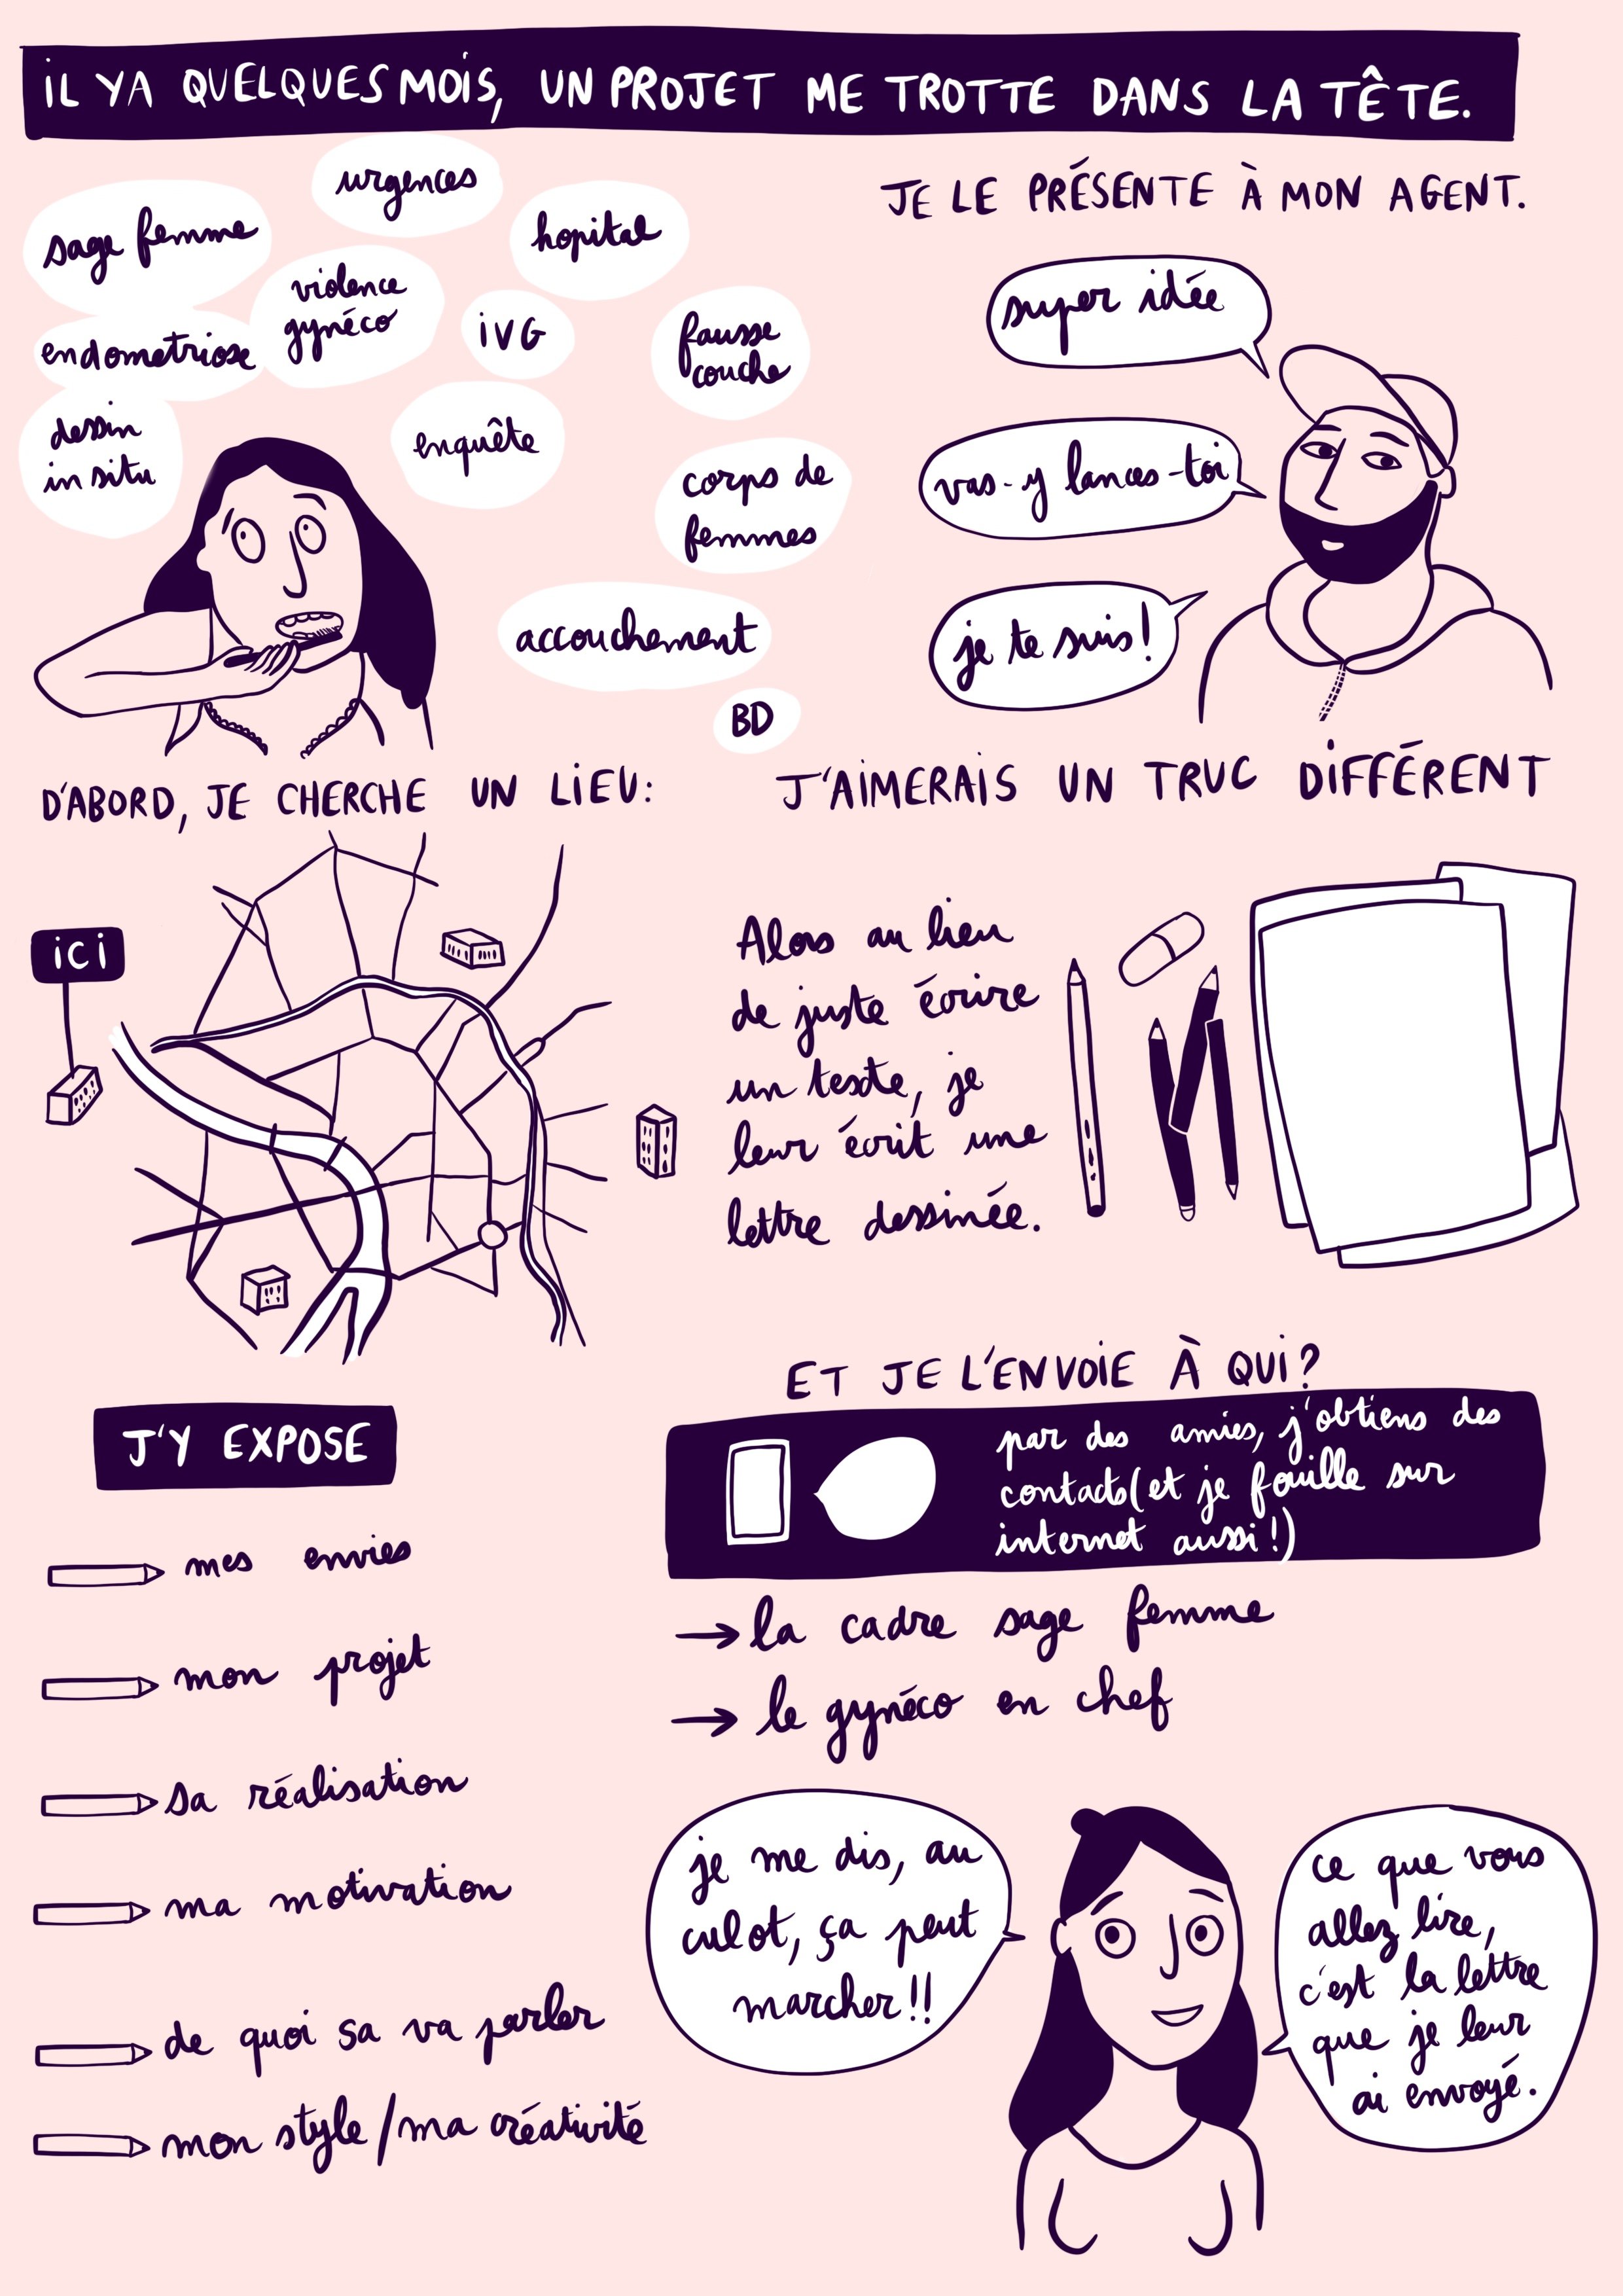 iL Y A QUELQUES MOIS, UN PROJET ME TROTTE DANS LA TÊTE.
urgences
sage femme
hopital
violence
gynéco
iVG
endometriose
fausse
couche
dessin
in situ
enquête
corps de
femmes
accouchement
BD
JE LE PRÉSENTE À MON AGENT.
super idée
vas-y lances-toi
je te suis!
D'ABORD, JE CHERCHE UN LiEU:
iCi
J'AiMERAiS UN TRUC DiFFÉRENT
Alors au lieu
de juste écrire
un texte, je
leur écrit une
lettre dessinée.
J'Y EXPOSE
mes envies
mon projet
sa réalisation
ma motivation
de quoi sa va parler
mon style/ma créativité
ET JE L'ENVOiE À QUi?
par des amies, j'obtiens des
contacts(et je fouille sur
internet aussi!)
→ la cadre sage femme
→ le gynéco en chef
je me dis, au
culot, ça peut
marcher!!
ce que vous
allez lire,
c'est la lettre
que je leur
ai envoyé.